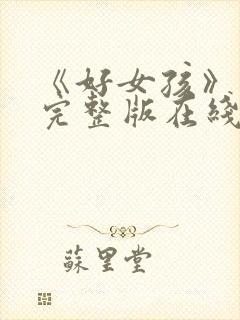 《好女孩》
完整版在线
蘇里堂